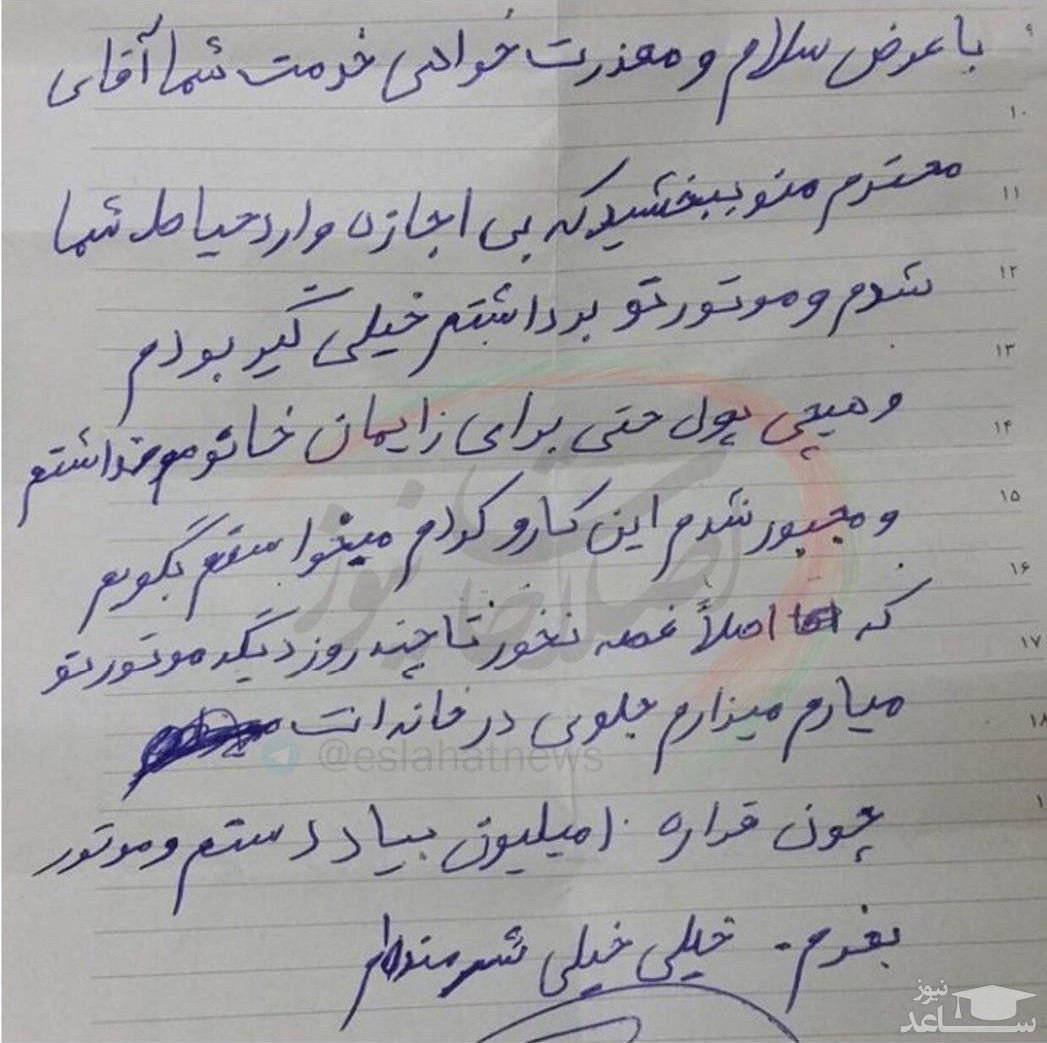 ۹
با عرض سلام و معذرت خواهی خدمت شما آقای
۱۰
محترم منو ببخشید که بی اجازه وارد حیاط شما
۱۱
شدم و موتورتو برداشتم خیلی گیر بودم
۱۲
۱۳
و هیچی پول حتی برای زایمان خانومم نداشتم
۱۴
و مجبور شدم این کارو کردم میخواستم بگویم
۱۵
۱۶
که اصلاً غصه نخور تا چند روز دیگه موتورتو
۱۷
میارم میزارم جلوی در خانه ات
۱۸
اصلاحات نیوز
@eslahatnews
چون قراره ۱۰ میلیون بیاد دستم و موتور
بخرم. خیلی خیلی شرمندام
نیوز
ساعد